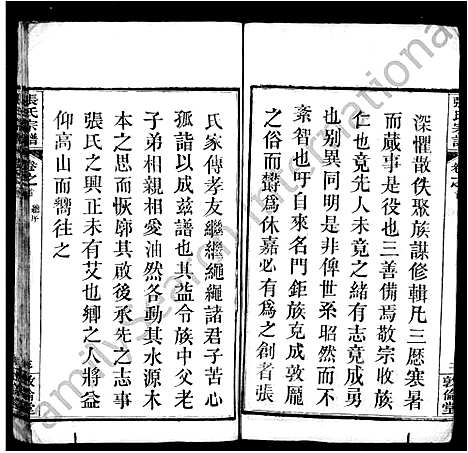 深懼散佚聚族謀修輯凡三厯寒暑
而蕆事是役也三善備焉敬宗收族
仁也竟先人未竟之緒有志竟成勇
也別異同明是非俾世系昭然而不
紊智也自來名門鉅族克成敦龐
之俗而欝爲休嘉必有爲之創者張
氏家傳孝友繼繼繩繩諸君子苦心
孤詣以成茲譜也其益令族中父老
子弟相親相愛油然各動其水源木
本之思而恢廓其啟後承先之志事
張氏之興正未有艾也鄉之人將益
仰高山而嚮往之
張氏宗譜
卷之首
敦倫堂
張氏宗譜
卷之首
總序
敦倫堂
familysearch international